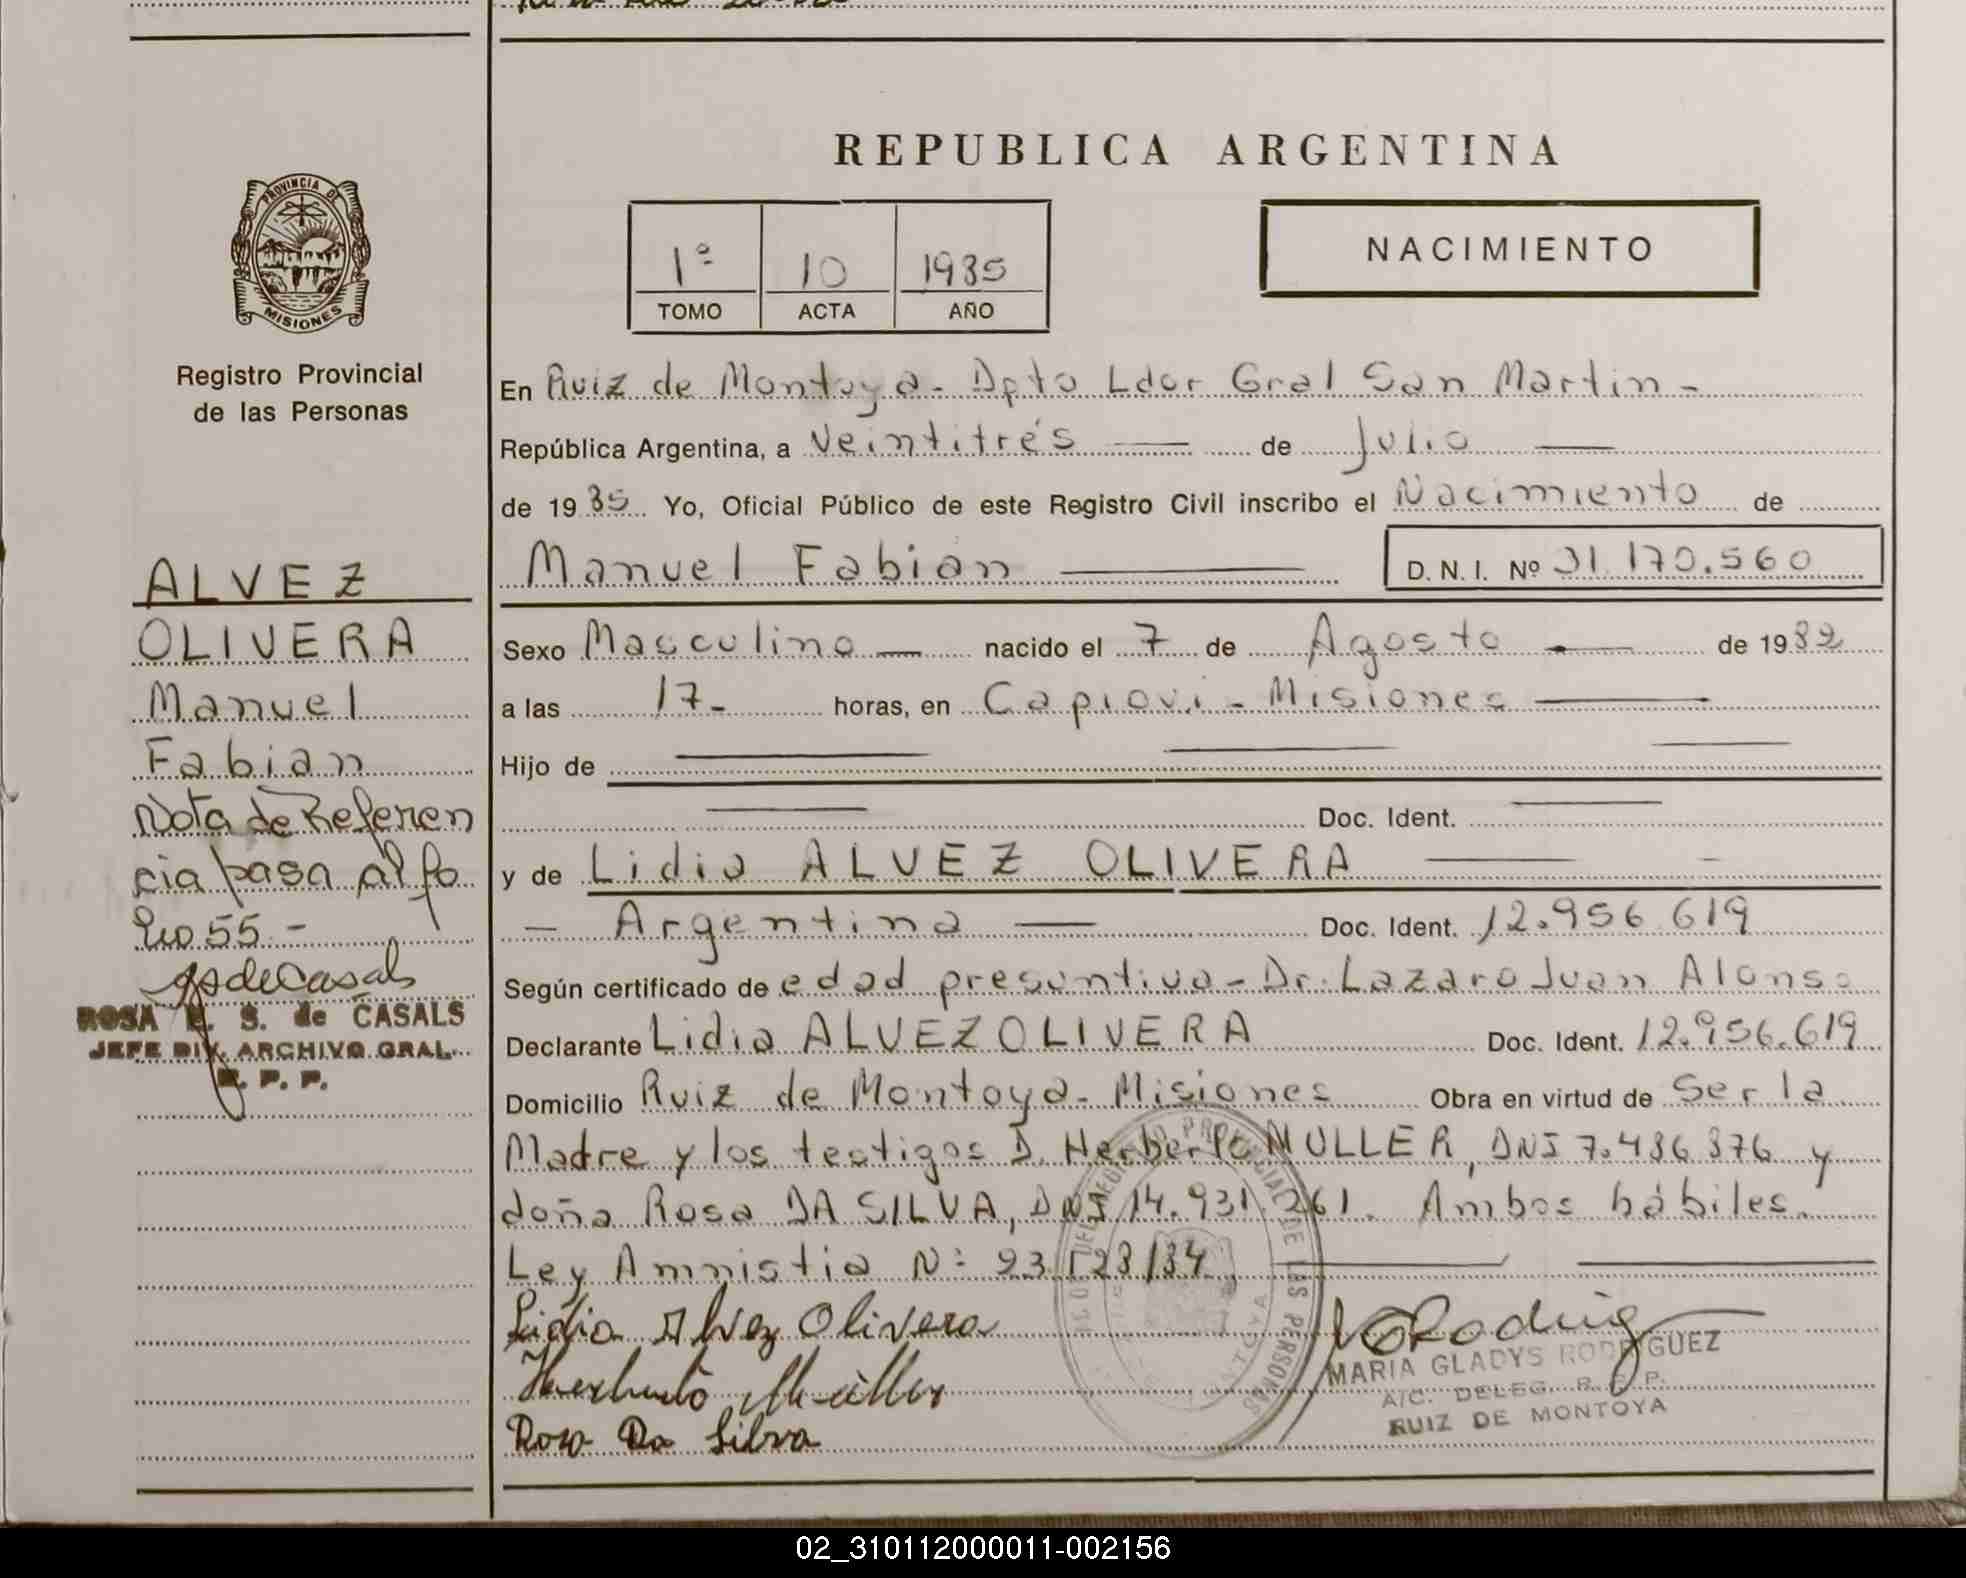 REPUBLICA ARGENTINA
PROVINCIA DE
MISIONES
Registro Provincial
de las Personas
1º 10 1985
TOMO ACTA AÑO
NACIMIENTO
En Ruiz de Montoya - Dpto Ldor Gral San Martin -
República Argentina, a Veintitrés de Julio
de 1985 Yo, Oficial Público de este Registro Civil inscribo el Nacimiento de
Manuel Fabian D. N. I. Nº 31.170.560
Sexo Masculino nacido el 7 de Agosto de 1982
a las 17- horas, en Capiovi - Misiones
Hijo de
Doc. Ident.
y de Lidia ALVEZ OLIVERA
- Argentina - Doc. Ident. 12.956.619
Según certificado de edad presuntiva - Dr. Lazaro Juan Alonso
Declarante Lidia ALVEZ OLIVERA Doc. Ident. 12.956.619
Domicilio Ruiz de Montoya - Misiones Obra en virtud de Ser la
Madre y los testigos D. Herberto MULLER, DNI 7.486.876 y
doña Rosa DA SILVA, DNI 14.931.261. Ambos hábiles.
Ley Amnistia Nº 23.128/84
Lidia Alvez Olivera
Herberto Müller
Rosa Da Silva
MARIA GLADYS RODRIGUEZ
A/C. DELEG. R. P. P.
RUIZ DE MONTOYA
ALVEZ
OLIVERA
Manuel
Fabian
Nota de Referen
cia pasa al fo
lio 55 -
ROSA E. S. de CASALS
JEFE DIV. ARCHIVO GRAL.
R. P. P.
02_310112000011-002156